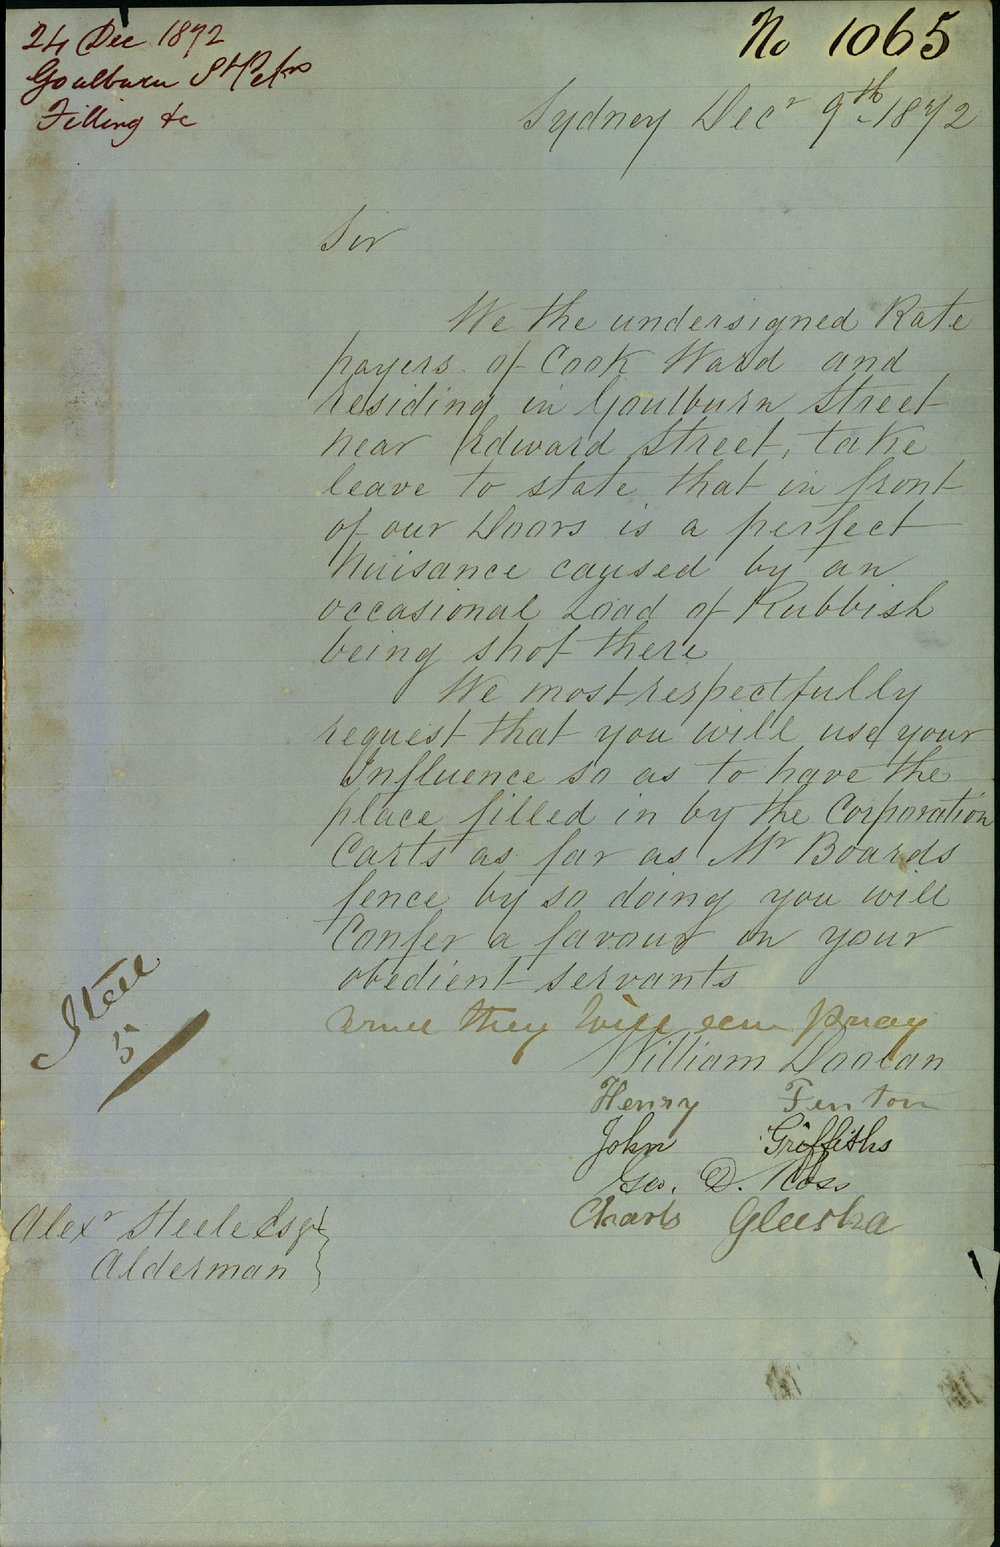 24 Dec 1872
Goulburn St Petns
Filling &c
No 1065
Sydney Decr 9th 1872
Sir
We the undersigned Rate
payers of Cook Ward and
residing in Goulburn Street
near Edward Street, take
leave to state that in front
of our Doors is a perfect
Nuisance caused by an
occasional Load of Rubbish
being shot there
We most respectfully
request that you will use your
Influence so as to have the
place filled in by the Corporation
Carts as far as Mr Boards
fence by so doing you will
Confer a favour on your
obedient servants
they will pray
William Doolan
Henry Fenton
John Griffiths
Geo. D. Ross
Charls
Steel
5
Alexr Steele Esqr
Alderman